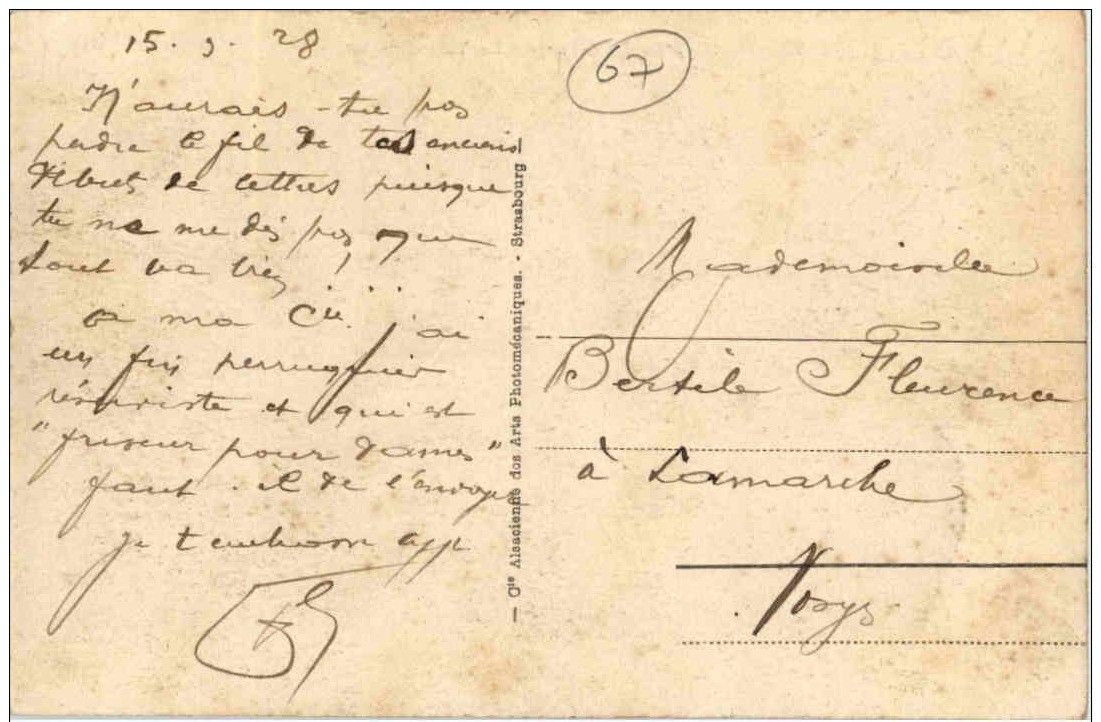 15. 9. 28
N'aurais-tu pas
perdre le fil de tes anciens
de lettres puisque
tu ne me dis pas que
tout va très
à ma Cie j'ai
un fin perruquier
réserviste et qui est
"friseur pour dames"
faut-il te l'envoyer
je t'embrasse aff
67
— Cie Alsacienne des Arts Photomécaniques. - Strasbourg —
Mademoiselle
Bertile Fleurence
à Lamarche
Vosges